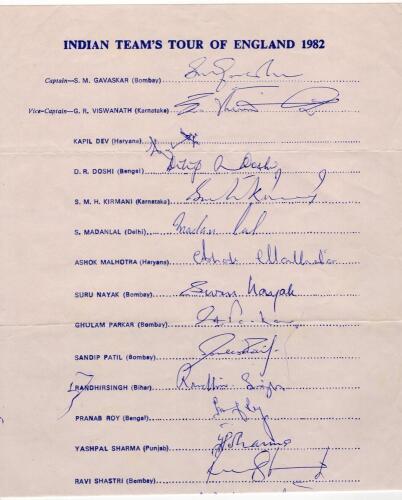 INDIAN TEAM'S TOUR OF ENGLAND 1982
Captain—S. M. GAVASKAR (Bombay)
Vice-Captain—G. R. VISWANATH (Karnataka)
KAPIL DEV (Haryana)
D. R. DOSHI (Bengal) Dilip R Doshi
S. M. H. KIRMANI (Karnataka)
S. MADANLAL (Delhi) Madan Lal
ASHOK MALHOTRA (Haryana) Ashok Malhotra
SURU NAYAK (Bombay) Suru Nayak
GHULAM PARKAR (Bombay)
SANDIP PATIL (Bombay)
RANDHIRSINGH (Bihar) Randhir Singh
PRANAB ROY (Bengal)
YASHPAL SHARMA (Punjab) YSharma
RAVI SHASTRI (Bombay)